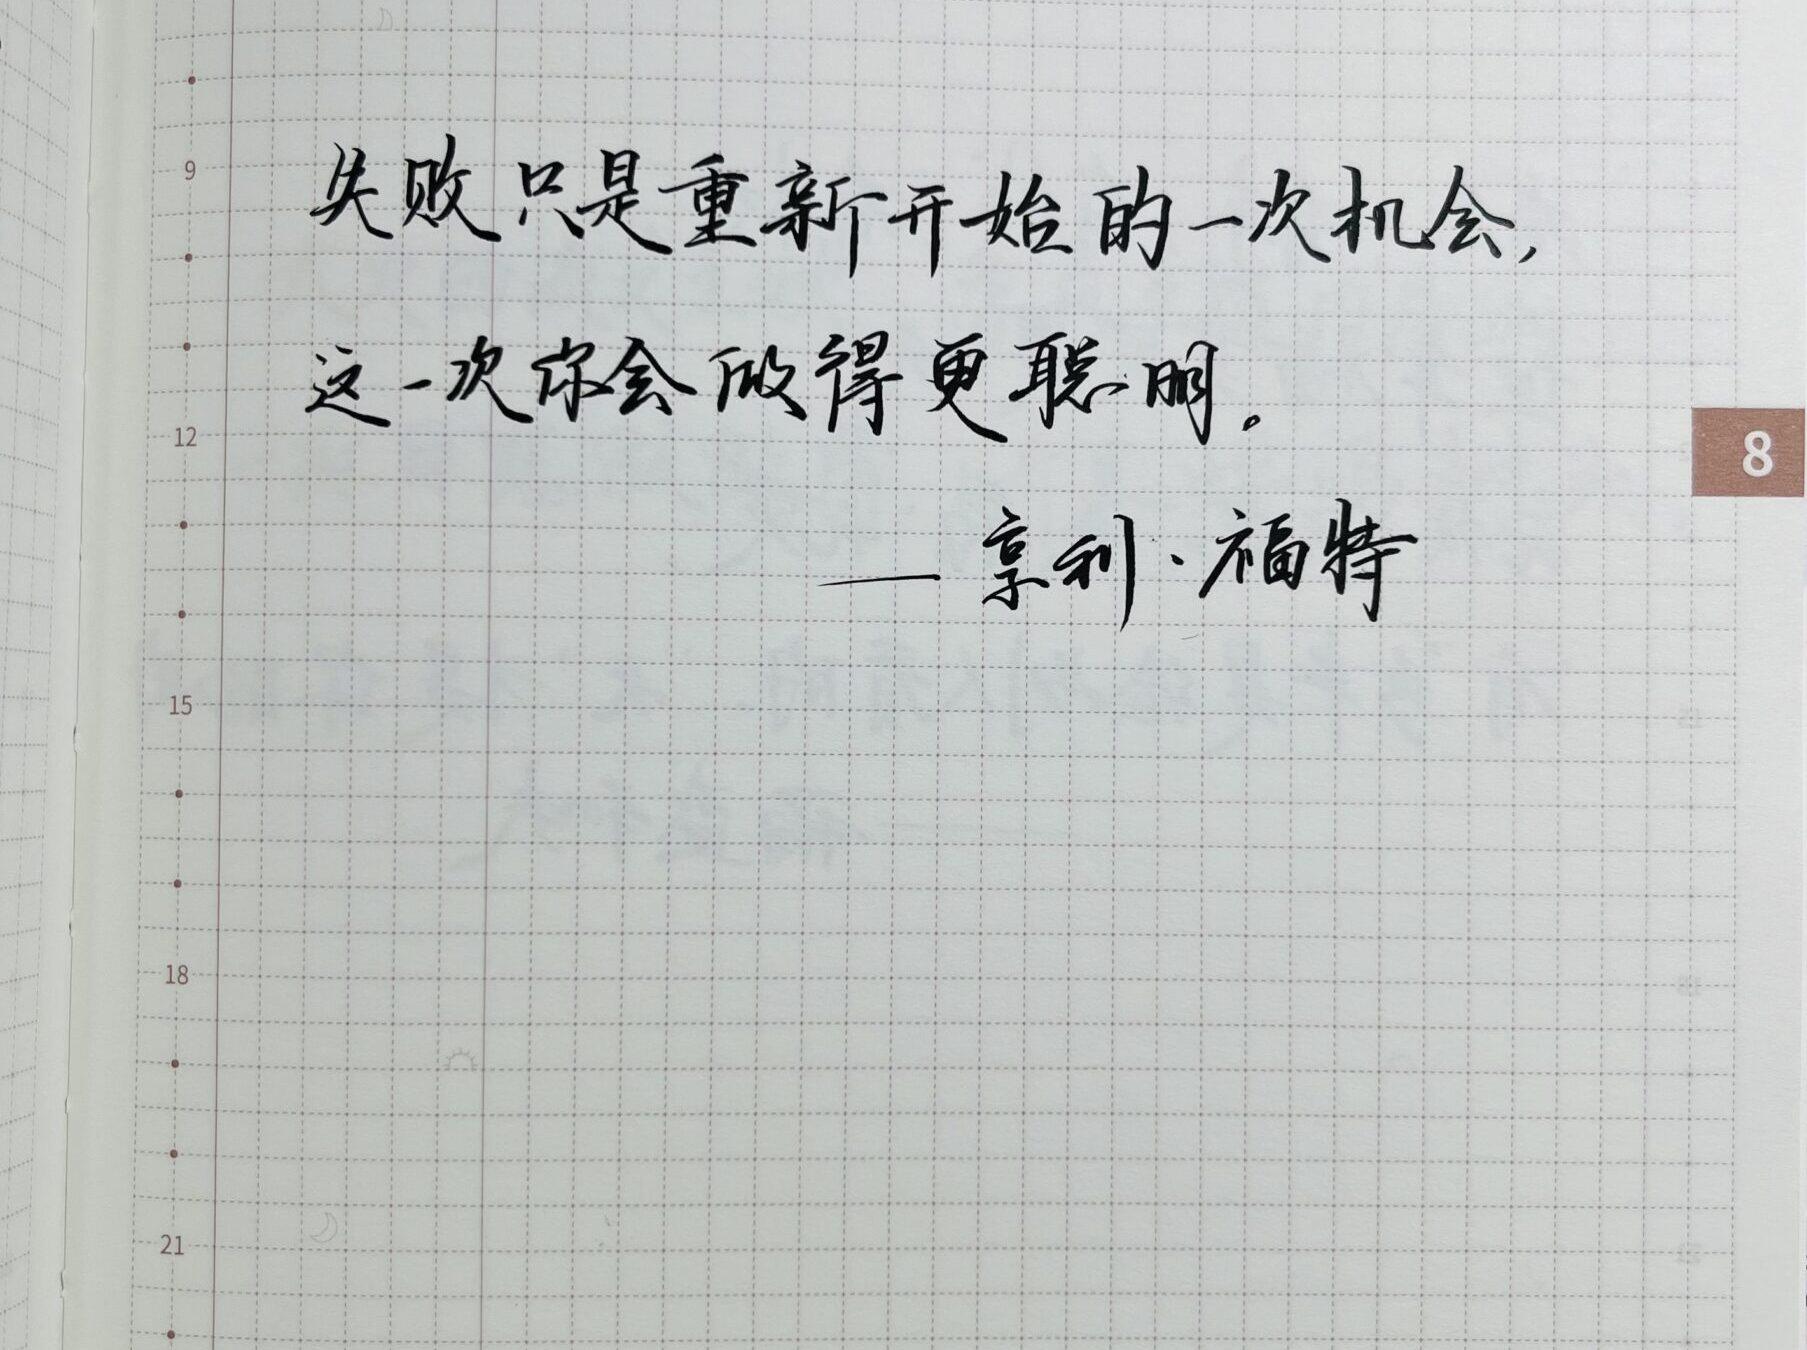 失败只是重新开始的一次机会,
这一次你会做得更聪明。
—— 亨利·福特
8
9
12
15
18
21